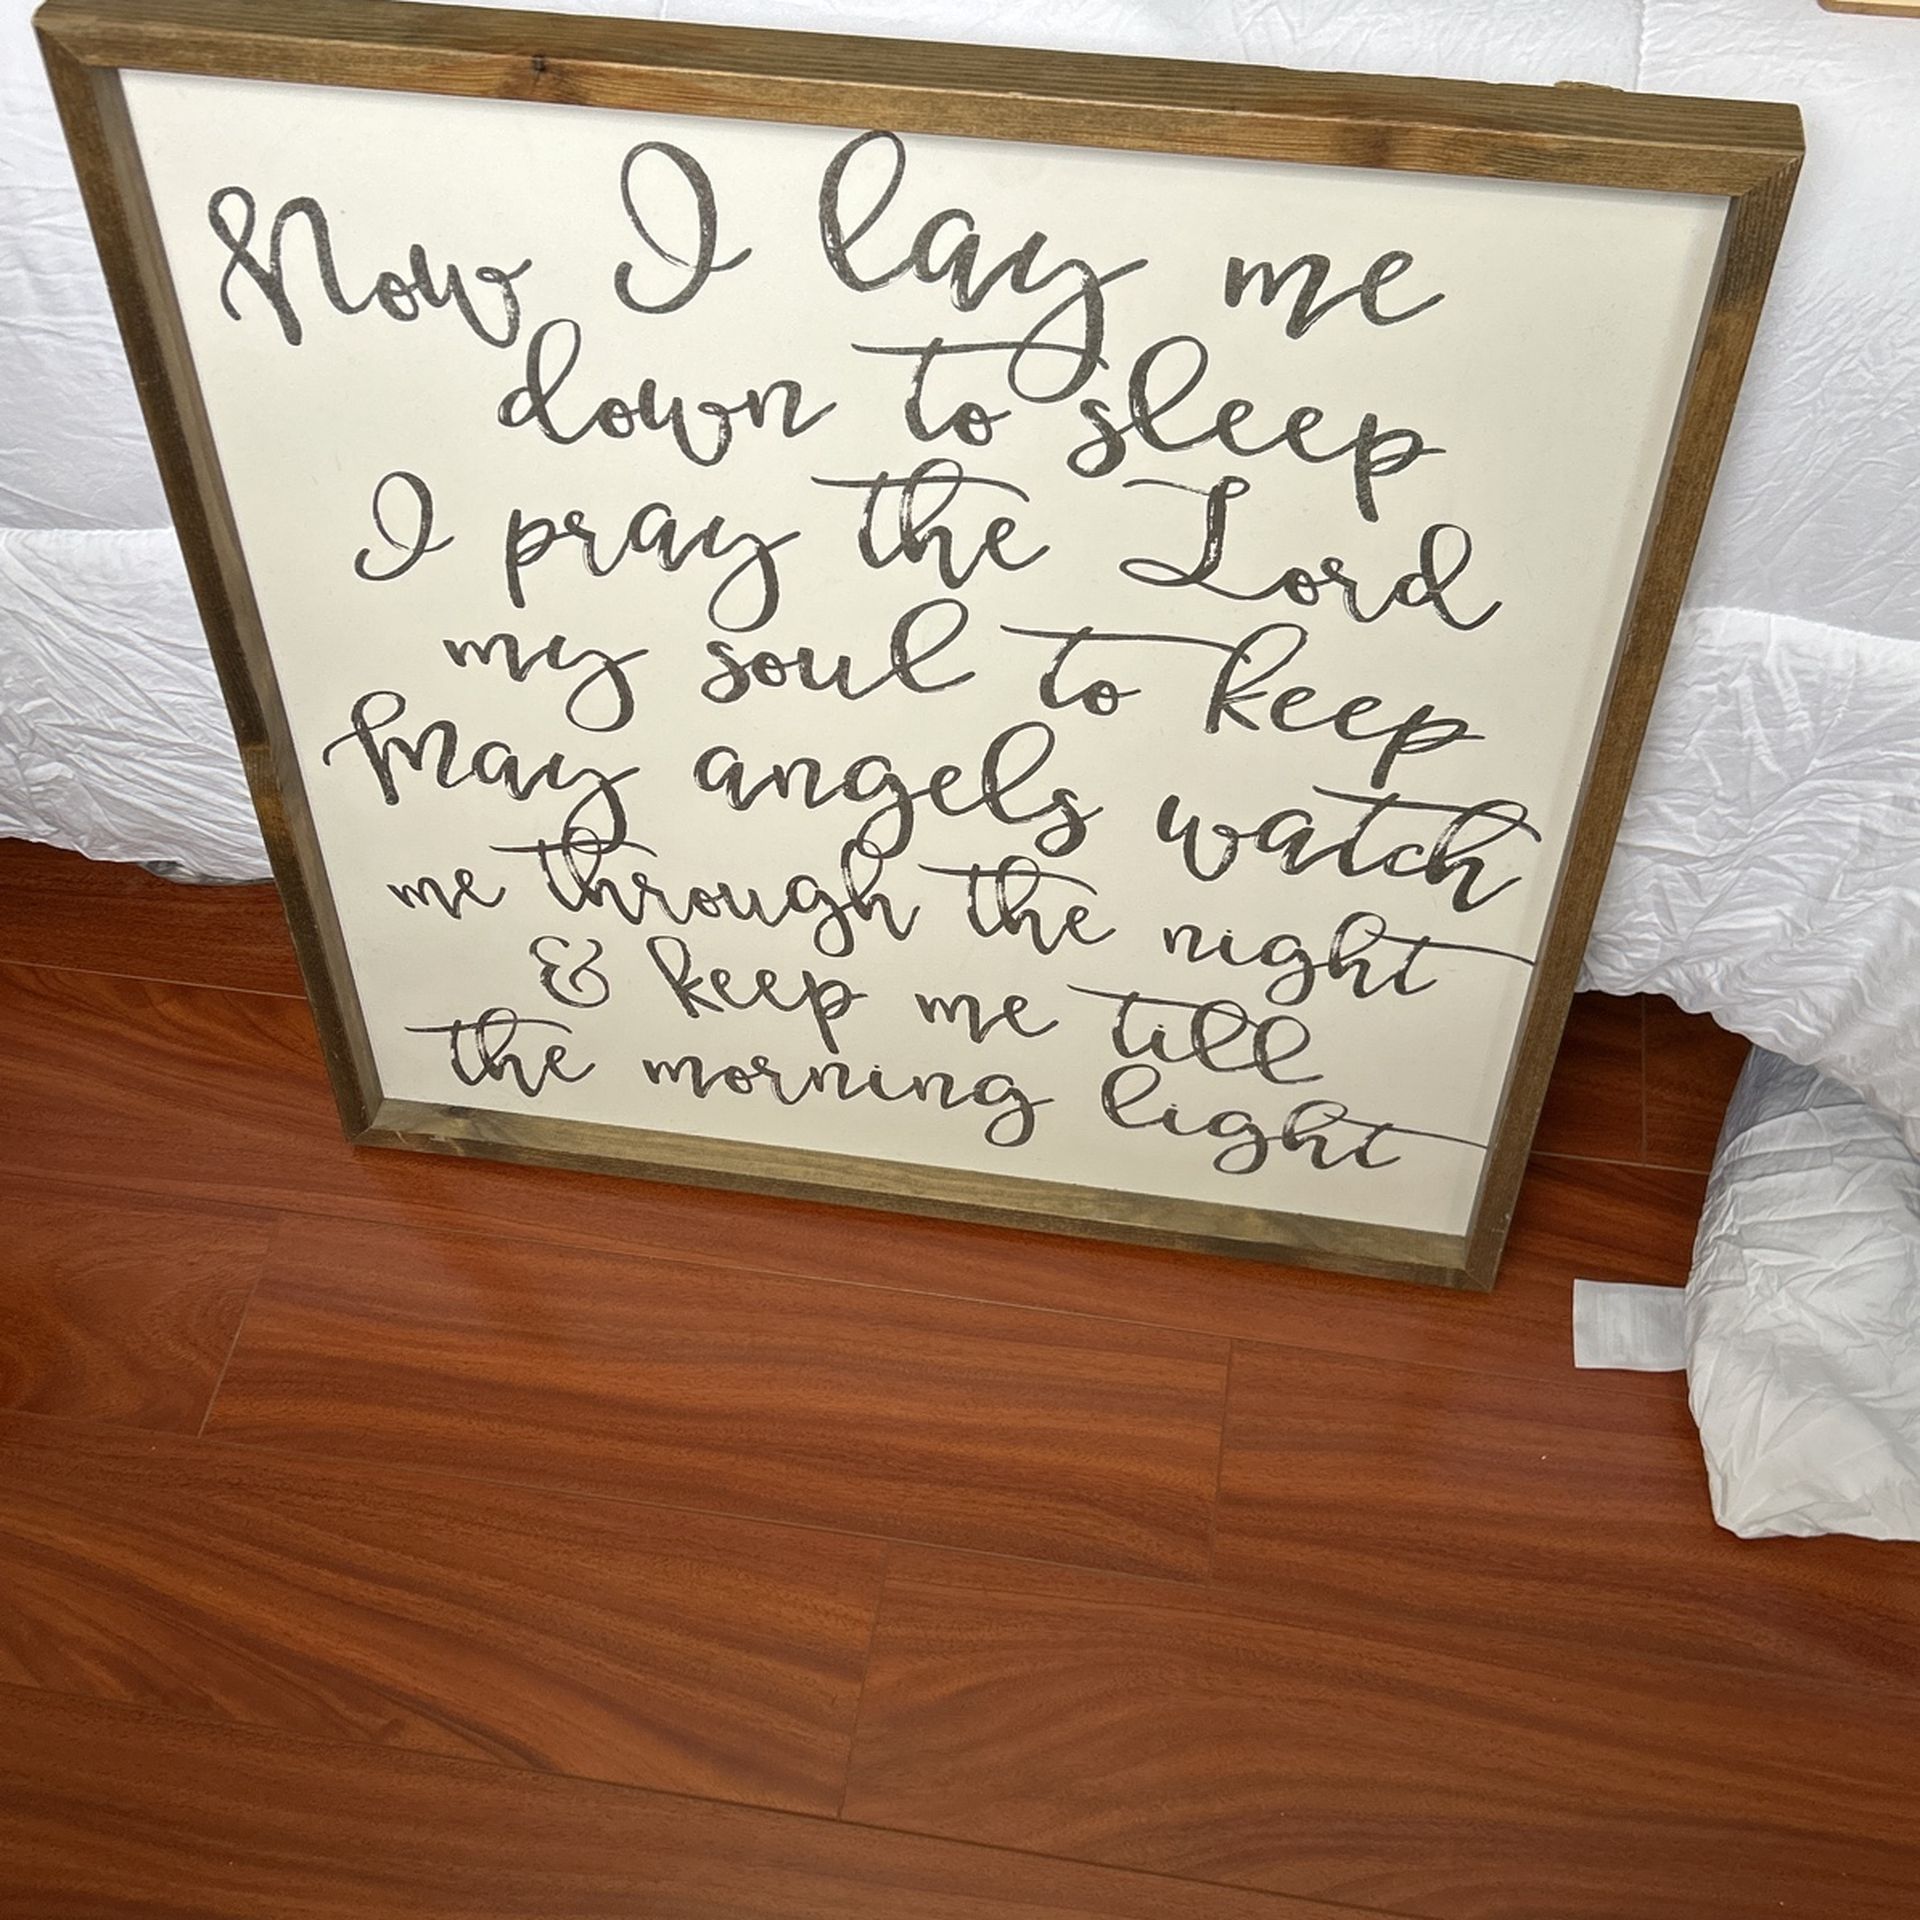 Now I lay me
down to sleep
I pray the Lord
my soul to keep
May angels watch
me through the night
& keep me till
the morning light